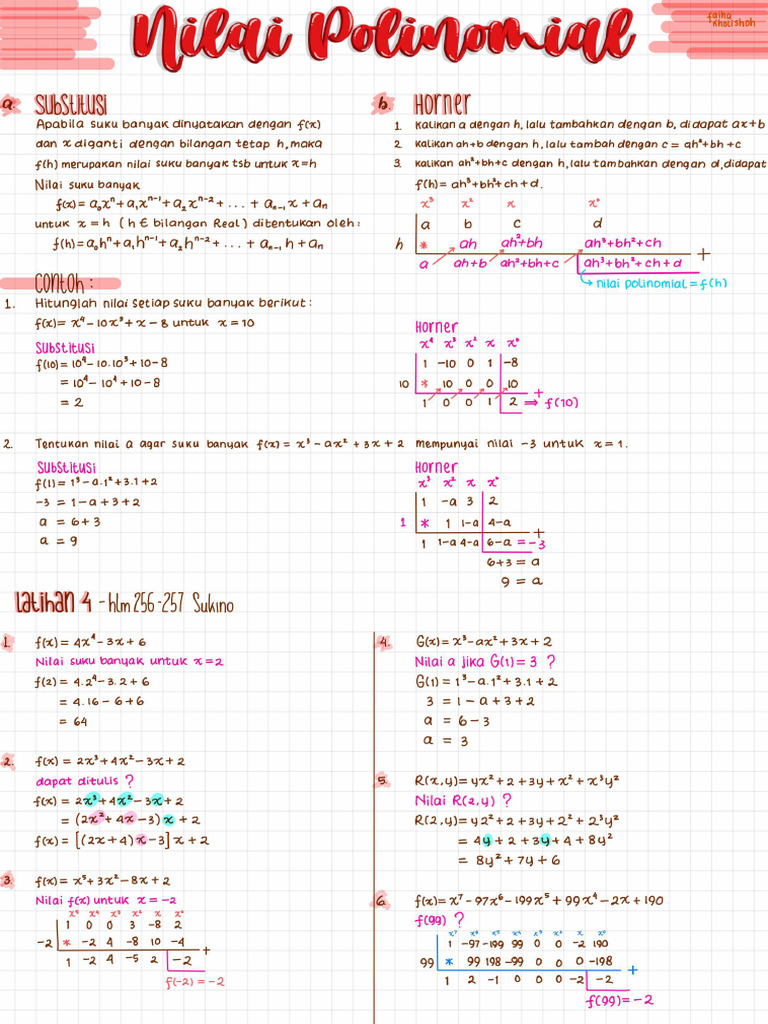 Nilai Polinomial
faiha kholishoh
a. Substitusi
Apabila suku banyak dinyatakan dengan f(x)
dan x diganti dengan bilangan tetap h, maka
f(h) merupakan nilai suku banyak tsb untuk x=h
Nilai suku banyak
f(x) = a₀xⁿ + a₁xⁿ⁻¹ + a₂xⁿ⁻² + ... + aₙ₋₁x + aₙ
untuk x = h (h € bilangan Real) ditentukan oleh:
f(h) = a₀hⁿ + a₁hⁿ⁻¹ + a₂hⁿ⁻² + ... + aₙ₋₁h + aₙ
b. Horner
1. Kalikan a dengan h, lalu tambahkan dengan b, didapat ax+b
2. Kalikan ah+b dengan h, lalu tambah dengan c = ah²+bh+c
3. Kalikan ah²+bh+c dengan h, lalu tambahkan dengan d, didapat
f(h) = ah³+bh²+ch+d.
x³ x² x x⁰
a b c d
h * ah ah²+bh ah³+bh²+ch +
a ah+b ah²+bh+c ah³+bh²+ch+d
→ nilai polinomial = f(h)
Contoh :
1. Hitunglah nilai setiap suku banyak berikut:
f(x) = x⁴ - 10x³ + x - 8 untuk x = 10
Substitusi
f(10) = 10⁴ - 10.10³ + 10 - 8
= 10⁴ - 10⁴ + 10 - 8
= 2
Horner
x⁴ x³ x² x x⁰
1 -10 0 1 -8
10 * 10 0 0 10 +
1 0 0 1 2 ⇒ f(10)
2. Tentukan nilai a agar suku banyak f(x) = x³ - ax² + 3x + 2 mempunyai nilai -3 untuk x = 1.
Substitusi
f(1) = 1³ - a.1² + 3.1 + 2
-3 = 1 - a + 3 + 2
a = 6 + 3
a = 9
Horner
x³ x² x x⁰
1 -a 3 2
1 * 1 1-a 4-a +
1 1-a 4-a 6-a = -3
6+3 = a
9 = a
Latihan 4 - hlm 256-257 Sukino
1. f(x) = 4x⁴ - 3x + 6
Nilai suku banyak untuk x = 2
f(2) = 4.2⁴ - 3.2 + 6
= 4.16 - 6 + 6
= 64
2. f(x) = 2x³ + 4x² - 3x + 2
dapat ditulis ?
f(x) = 2x³ + 4x² - 3x + 2
= (2x² + 4x - 3) x + 2
f(x) = [(2x + 4) x - 3] x + 2
3. f(x) = x⁵ + 3x² - 8x + 2
Nilai f(x) untuk x = -2
x⁵ x⁴ x³ x² x x⁰
1 0 0 3 -8 2
-2 * -2 4 -8 10 -4 +
1 -2 4 -5 2 -2
f(-2) = -2
4. G(x) = x³ - ax² + 3x + 2
Nilai a jika G(1) = 3 ?
G(1) = 1³ - a.1² + 3.1 + 2
3 = 1 - a + 3 + 2
a = 6 - 3
a = 3
5. R(x,y) = yx² + 2 + 3y + x² + x³y²
Nilai R(2,y) ?
R(2,y) = y2² + 2 + 3y + 2² + 2³y²
= 4y + 2 + 3y + 4 + 8y²
= 8y² + 7y + 6
6. f(x) = x⁷ - 97x⁶ - 199x⁵ + 99x⁴ - 2x + 190
f(99) ?
x⁷ x⁶ x⁵ x⁴ x³ x² x x⁰
1 -97 -199 99 0 0 -2 190
99 * 99 198 -99 0 0 0 -198 +
1 2 -1 0 0 0 -2 -2
f(99) = -2